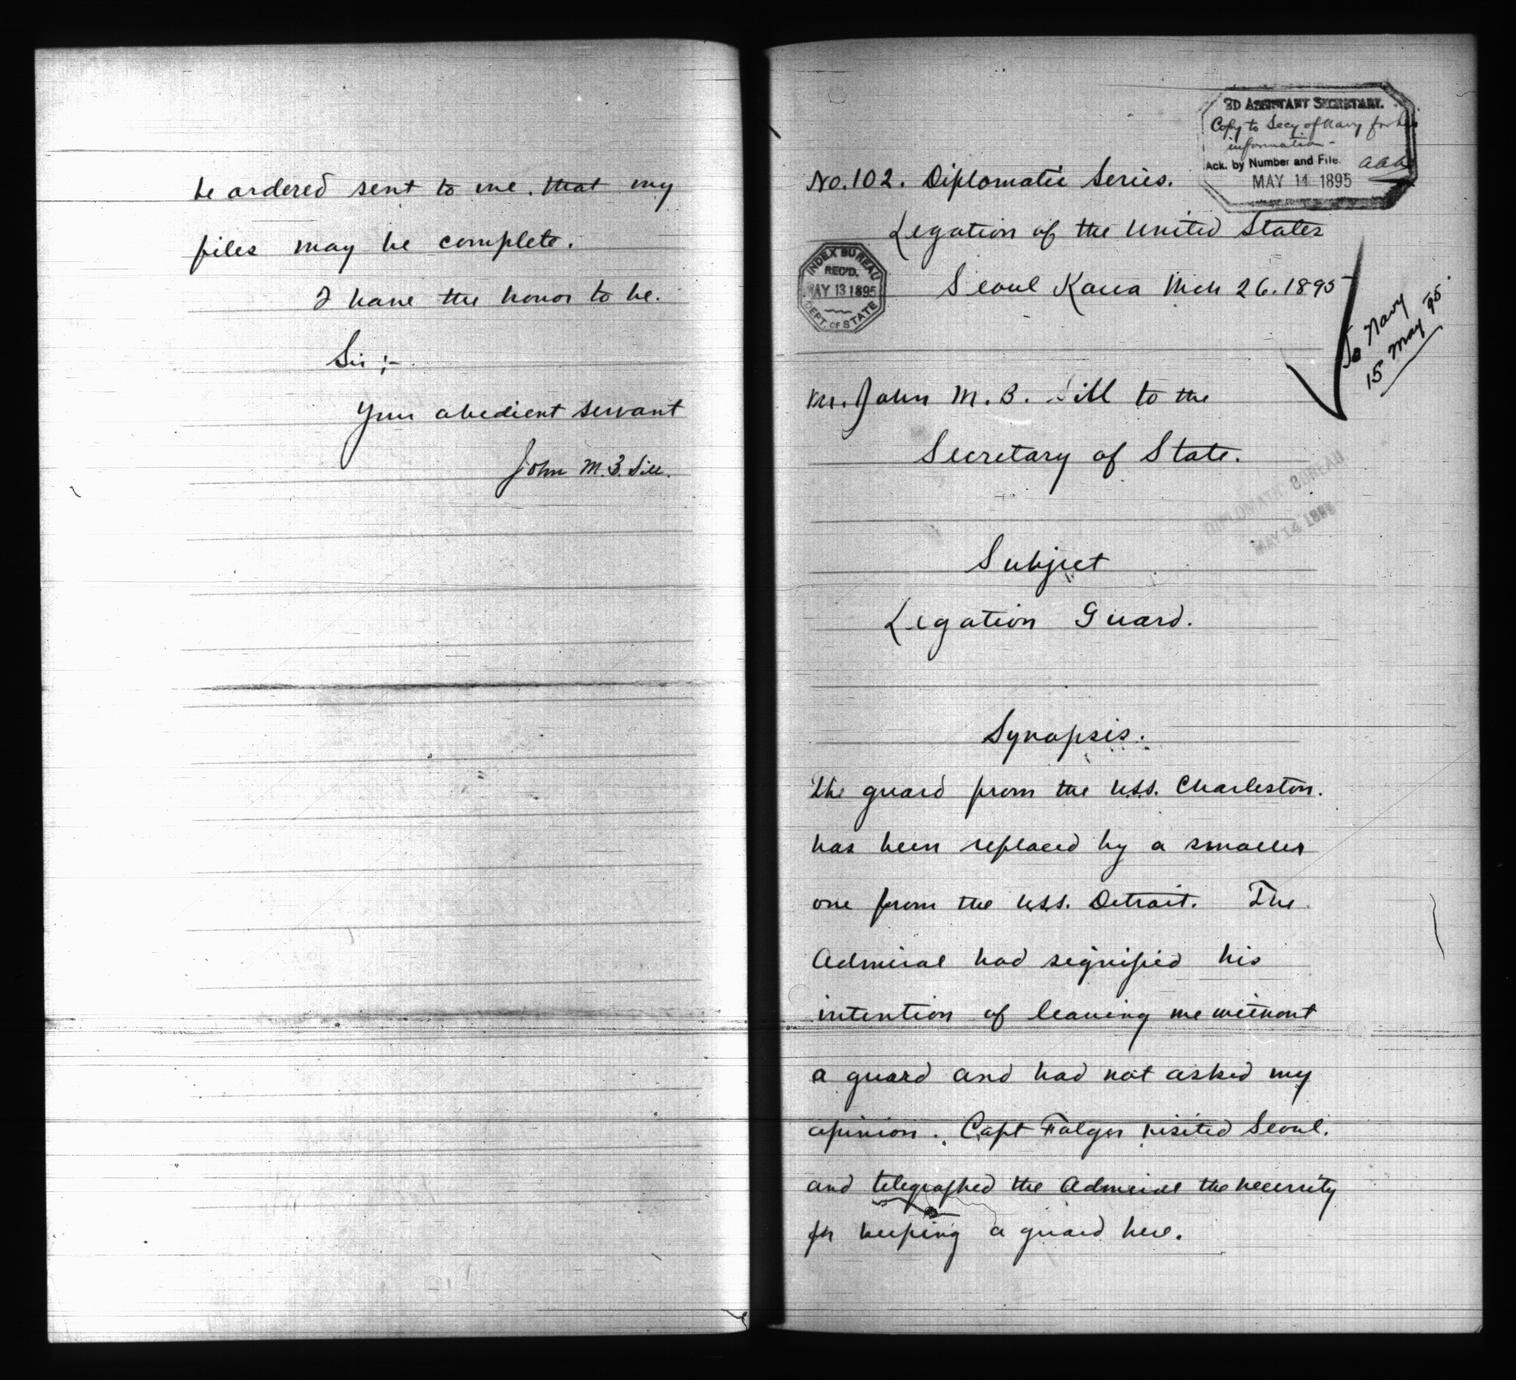 be ordered sent to me, that my
files may be complete.
I have the honor to be.
Sir;-
Your obedient servant
John M. B. Sill.
3D ASSISTANT SECRETARY.
Copy to Secy of Navy for his
information -
Ack. by Number and File.
MAY 14 1895
No. 102. Diplomatic Series.
Legation of the United States
INDEX BUREAU
REC'D.
MAY 13 1895
DEPT. OF STATE
Seoul Korea Mch 26. 1895
To Navy
15 May 95.
Mr. John M. B. Sill to the
Secretary of State.
DIPLOMATIC BUREAU
MAY 14 1895
Subject
Legation Guard.
Synopsis.
The guard from the U.S.S. Charleston.
has been replaced by a smaller
one from the U.S.S. Detroit. The
Admiral had signified his
intention of leaving me without
a guard and had not asked my
opinion. Capt Folger visited Seoul.
and telegraphed the Admiral the necessity
for keeping a guard here.